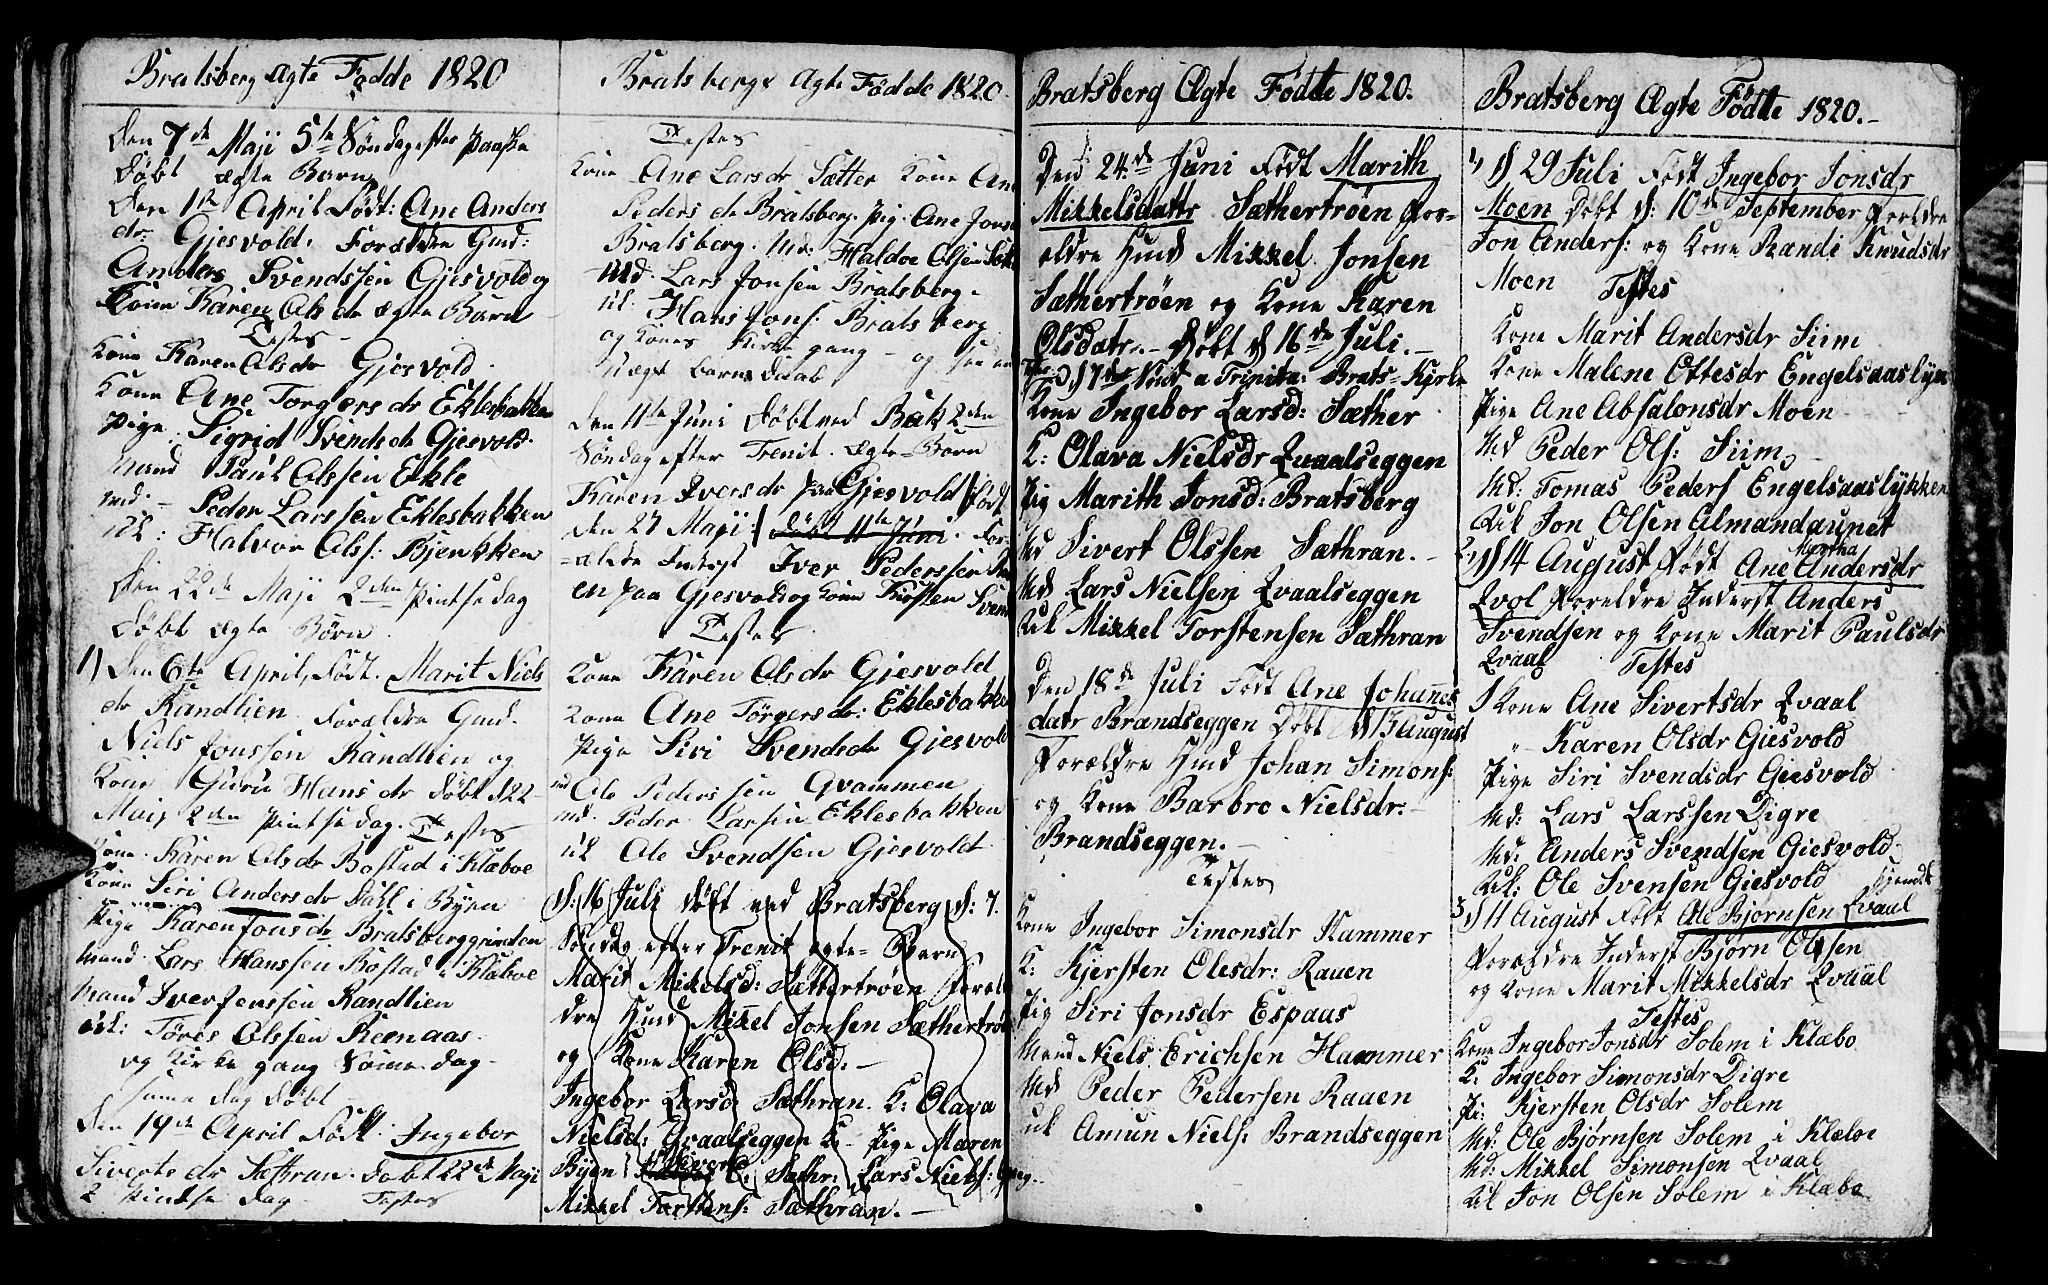 Bratsberg ægte Födde 1820
Den 7de Maji 5te Söndag efter Paaske
Döbt ægte Barn
Den 1te April Födt: Ane Anders
dr: Gjesvold. Forældre Gmd:
Anders Svendssen Gjesvold og
Kone Karen Ols dr ægte Barn
Testes
Kone Karen Olsdr Gjesvold
Kone Ane Torgers dr Eklesbakken
Pige Sigrid Svends dr Gjesvold
Mand Paul Olssen Ekle
md. Peder Larssen Eklesbakken
uk: Halvor Olss:
Den 22de Maji 2den Pintsedag
Döbt ægte Börn
1) Den 6te April, Födt. Marit Niels
dr Randlien Forældre Gmd.
Niels Jonssen Randlien og
Kone Guru Hans dr Döbt d 22
Maij 2den Pintsedag. Testes
Kone Karen Olsdr Bostad i Klæboe
Kone Siri Anders dr Dahl i Byen
Pige Karen Jonsdr Bratsberggrinden
Mand Lars Hanssen Bostad i Klæboe
Mand Iver Jenssen Randlien
uk: Töres Olssen Reenaas
og Kirke gang Samme dag
samme dag Döbt
Den 19de April Födt. Ingebor
Siverts dr Sæthran. Döbt 22de Maji
2 Pintse dag Testes
Bratsberg ægte Födde 1820
Testes
Kone Ane Larsdr Sætter Kone Ane
Peders dr Bratsberg. pig. Ane Jons
Bratsberg. Md: Haldor Olsen
md. Lars Jonsen Bratsberg.
uk. Hans Jons: Bratsberg
og Kones Kirke gang - og
ægte barns Daab
Den 11te Juni Döbt ved Bak 2den
Söndag efter Trenit. Ægte Barn
Karen Ivers dr paa Gjesvold Födt
den 27 Maji: Döbt 11te Juni. For-
ældre Inderst Iver Pederssen
en paa Gjesvold og Kone Kirsten Svend
Testes
Kone Karen Olsdr Gjesvold
Kone Ane Törgers dr: Eklesbakken
Pige Siri Svendsdr Gjesvold
md Ole Peders sen Qvammen
md. Peder Larsen Eklesbakken
uk Ole Svendsen Gjesvold
d: 16 Juli döbt ved Bratsberg d: 7.
Söndag efter Trenit ægte Barn
Marit Mikelsd: Sættertröen Foræl
dre Hmd Mikkel Jonsen Sæthertröe
og Kone Karen Olsd:
Ingebor Larsd Sæthran. K: Olava
Nielsd: Qvaalseggen K- Pige Maren
Byen Sivert O: Sæthr: Lars Niels: Qvag..
Mikkel Torstens: Sæthran.
Bratsberg Ægte Födte 1820.
Den 24de Juni Födt Marith
Mikkelsdattr Sæthertröen For-
ældre Hmd Mikkel Jonsen
Sæthertröen og Kone Karen
Olsdatr. - Döbt d 16de Juli.
d 7de Sönd a Trinita: Brats= Kjrke
Kone Ingebor Larsd: Sæther
K: Olava Nielsdr Qvaalseggen
Pig Marith Jonsd: Bratsberg
Md Sivert Olssen Sæthran.
Md Lars Nielsen Qvaalseggen
Uk Mikkel Torstensen Sæthran
Den 18de Juli Födt Ane Johannes
datr Brandseggen Döbt d 13 August
Forældre Hmd Johan Simons:
og Kone Barbro Nielsdr.
Brandseggen.
Testes
Kone Ingebor Simonsdr Hammer
K: Kjersten Olesdr: Rauen
Pig Siri Jonsdr Espaas
Mand Niels Erichsen Hammer
Md Peder Pedersen Rauen
uk Amun Niels: Brandseggen
Bratsberg Ægte Födte 1820.
1) d 29 Juli Födt Ingebor Jonsdr
Moen Döbt d: 10de September Foreldre
Jon Anders: og Kone Randi Knudsdr
Moen Testes
Kone Marit Andersdr Siim
Kone Malene Ottesdr Engelsaaslyk
Pige Ane Absalonsdr Moen
Md Peder Ols: Siim
Md: Tomas Peders Engelsaaslykken
Uk Jon Olsen Almandaunet
Martha
2) d 14 August Födt Ane Andersdr
Qvol Foreldre Inderst Anders
Svendsen og Kone Marit Paulsdr
Qvaal Testes
Kone Ane Sivertsdr Qvaal
" Karen Olsdr Giesvold
Pige Siri Svendsdr Giesvold
Md: Lars Larssen Digre
Md: Anders Svendsen Giesvold
Uk: Ole Svensen Giesvold
3 d 11 August Födt Ole Bjornsen Qvaal
Forældre Inderst Bjorn Olsen
og Kone Marit Mikkelsdr Qvaal
Testes
Kone Ingebor Jonsdr Solem i Klæbo
K: Ingebor Simonsdr Digre
Pi: Kjersten Olsdr Solem
Md: Ole Bjørnsen Solem i Klæbe
Md: Mikkel Simonsen Qvaal
Uk Jon Olsen Solem i Klæbo